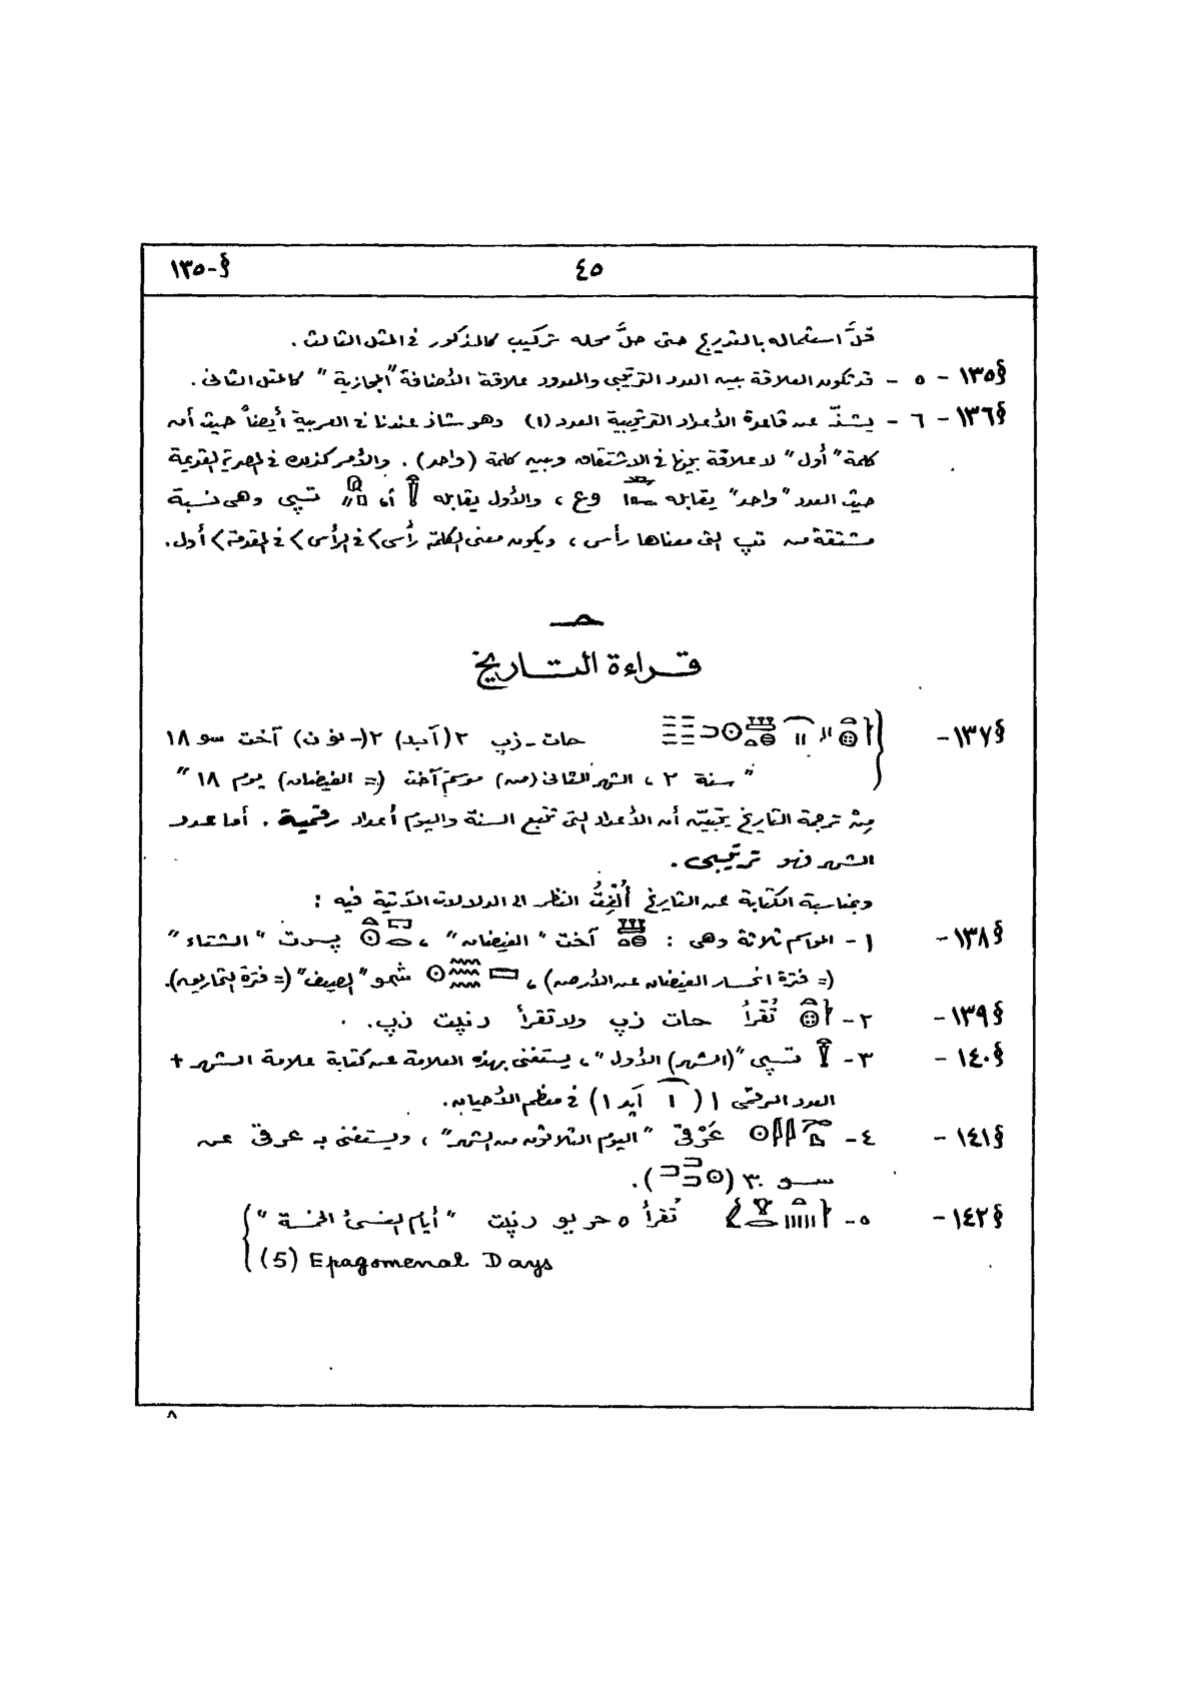 §-١٣٥ ٤٥
قلَّ استعماله بالتدريج حتى حلَّ محله تركيب كالمذكور فى المثل الثالث .
§١٣٥ - ٥ - قد تكون العلاقة بين العدد الترتيبى والمعدود علاقة الأضافة "المجازية" كالمثل الثانى .
§١٣٦ - ٦ - يشذّ عن قاعدة الأعداد الترتيبية العدد (١) وهو شاذ عندنا فى العربية أيضاً حيث أن
كلمة "أول" لا علاقة بينها فى الاشتقاق وبين كلمة (واحد) . والأمر كذلك فى المصرية القديمة
حيث العدد "واحد" يقابله وع ، والأول يقابله أو تـپى وهى نسبة
مشتقة من تپ التى معناها رأس ، ويكون معنى الكلمة رأسى > فى الرأس > فى المقدمة > أول.
حـ
قـراءة التـاريخ
§١٣٧ - حات - زپ ٢ (آبد) ٢ (- نو ن) آخت سو ١٨
"سنة ٢ ، الشهر الثانى (من) موسم آخت (= الفيضان) يوم ١٨"
مِنْ ترجمة التاريخ يتبيّن أن الأعداد التى تتبع السنة واليوم أعداد رقمية . أما عدد
الشهر فهو ترتيبى .
وبمناسبة الكتابة عن التاريخ أُلْفِتُ النظر الى الدلالات الآتية فيه :
§١٣٨ - ١ - المواسم ثلاثة وهى : آخت "الفيضان" ، پـرت "الشتاء"
(= فترة انحسار الفيضان عن الأرض) ، شمو "الصيف" (= فترة التحاريق).
§١٣٩ - ٢ - تُقْرأ حات زپ ولا تقرأ رنپت زپ.
§١٤٠ - ٣ - تـپى "(الشهر) الأول" ، يستغنى بهذه العلامة عن كتابة علامة الشهر +
العدد الرقمى ١ ( آبد ١) فى معظم الأحيان.
§١٤١ - ٤ - عَرْقى "اليوم الثلاثون من الشهر" ، ويستغنى بـ عرقى عن
سـو ٣٠ ( ).
§١٤٢ - ٥ - تُقرأ ٥ حريو رنپت "أيام النسئ الخمسة"
(5) Epagomenal Days
٨